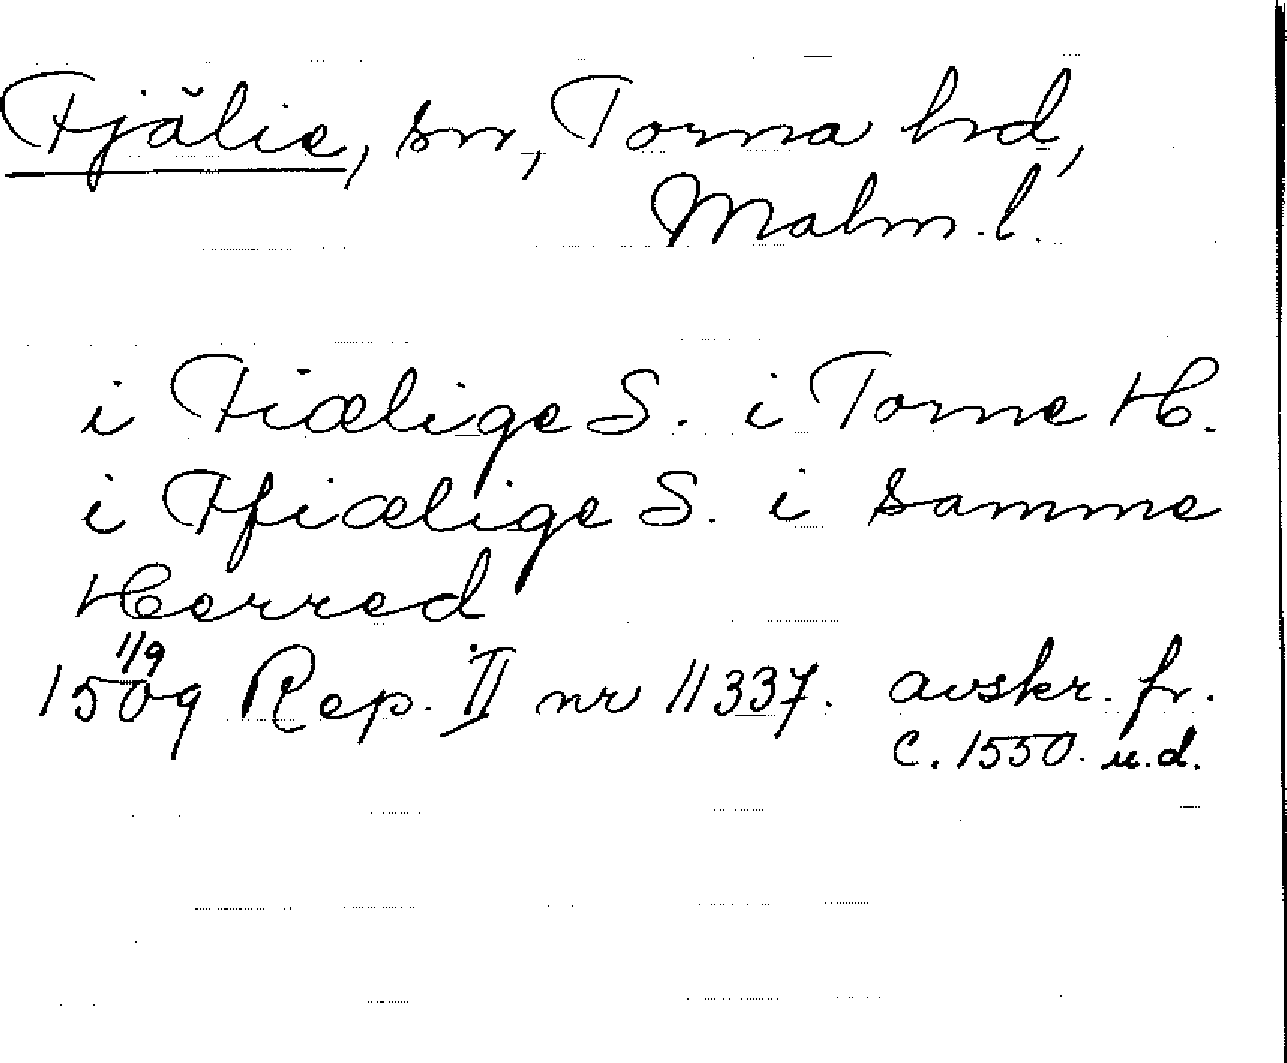 Fjälie, sn, Torna hd,
Malm. l.
i Fiælige S. i Torne H.
i Ffiælige S. i samme
Herred
1/9
1509 Rep. II nr 11337. avskr. fr.
c. 1550. u.d.